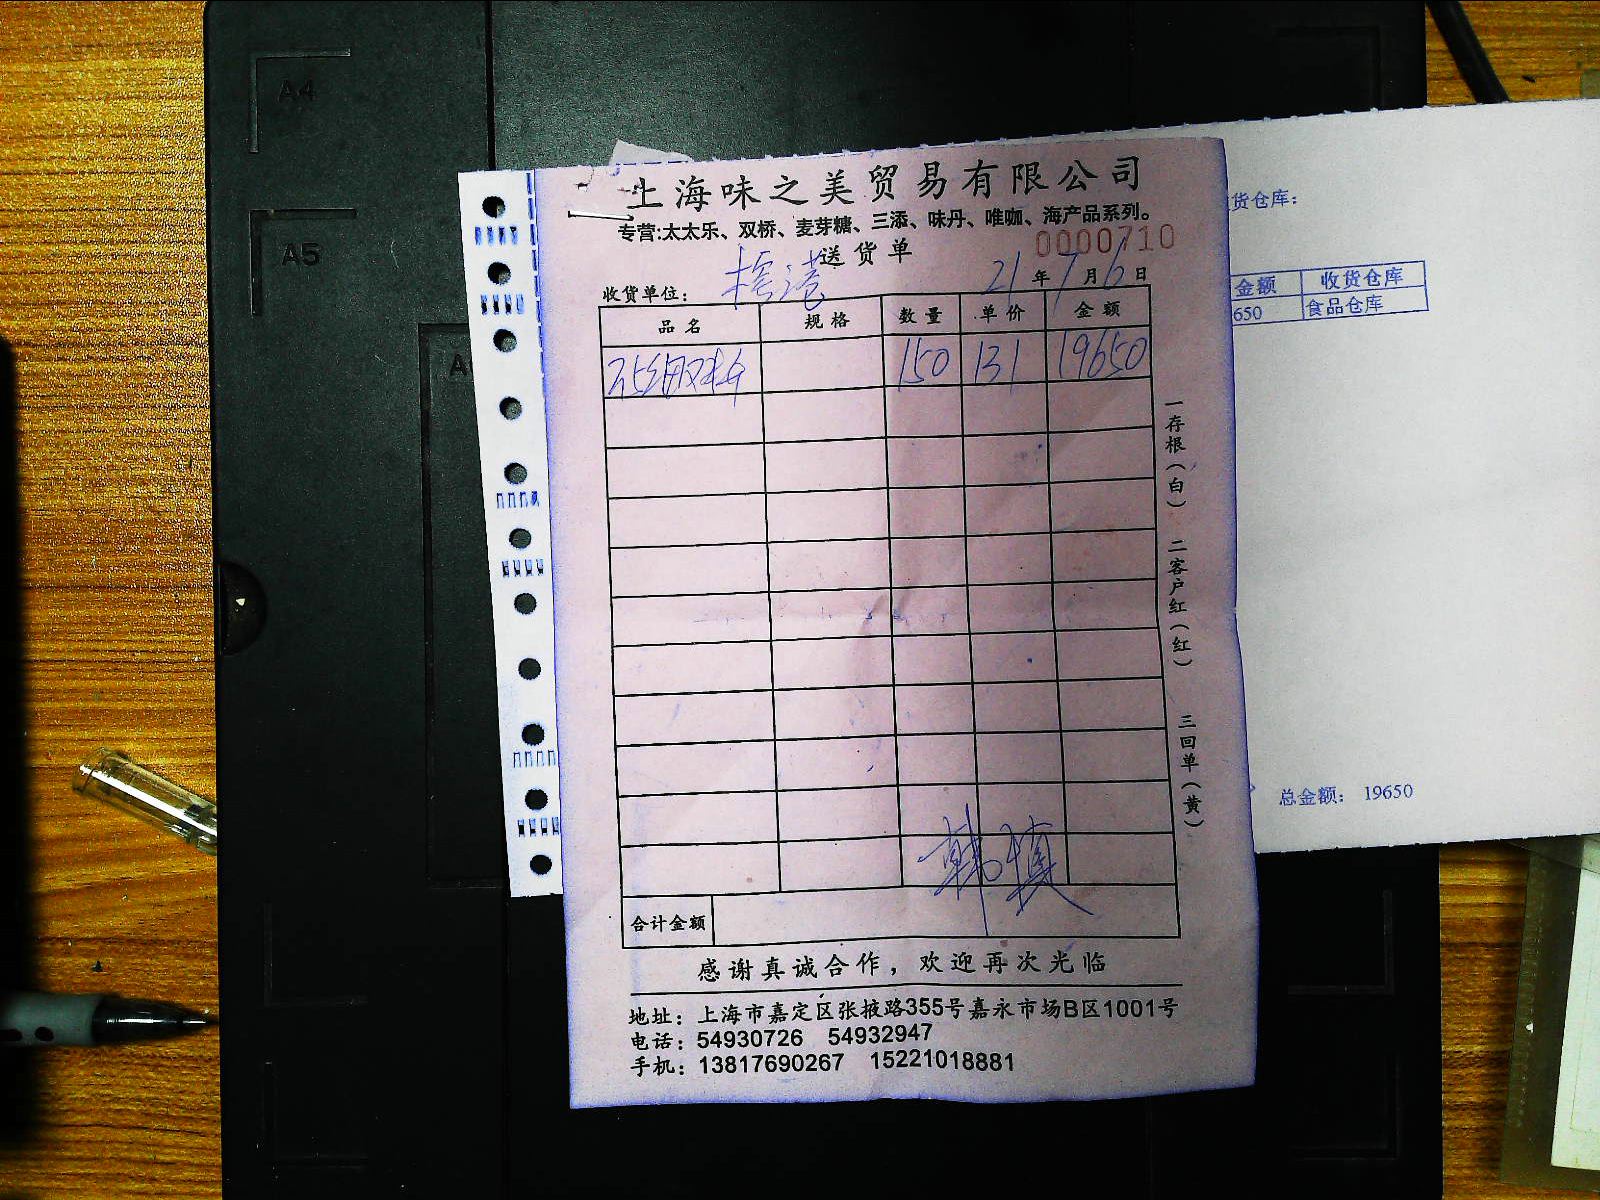 A4
A5
上海味之美贸易有限公司
专营:太太乐、双桥、麦芽糖、三添、味丹、唯咖、海产品系列。
送货单
0000710
收货单位:
21年7月6日
品名 规格 数量 单价 金额
150 131 19650
合计金额
韩慎
感谢真诚合作，欢迎再次光临
地址：上海市嘉定区张掖路355号嘉永市场B区1001号
电话：54930726 54932947
手机：13817690267 15221018881
一存根（白） 二客户红（红） 三回单（黄）
货仓库：
金额 收货仓库
650 食品仓库
总金额： 19650